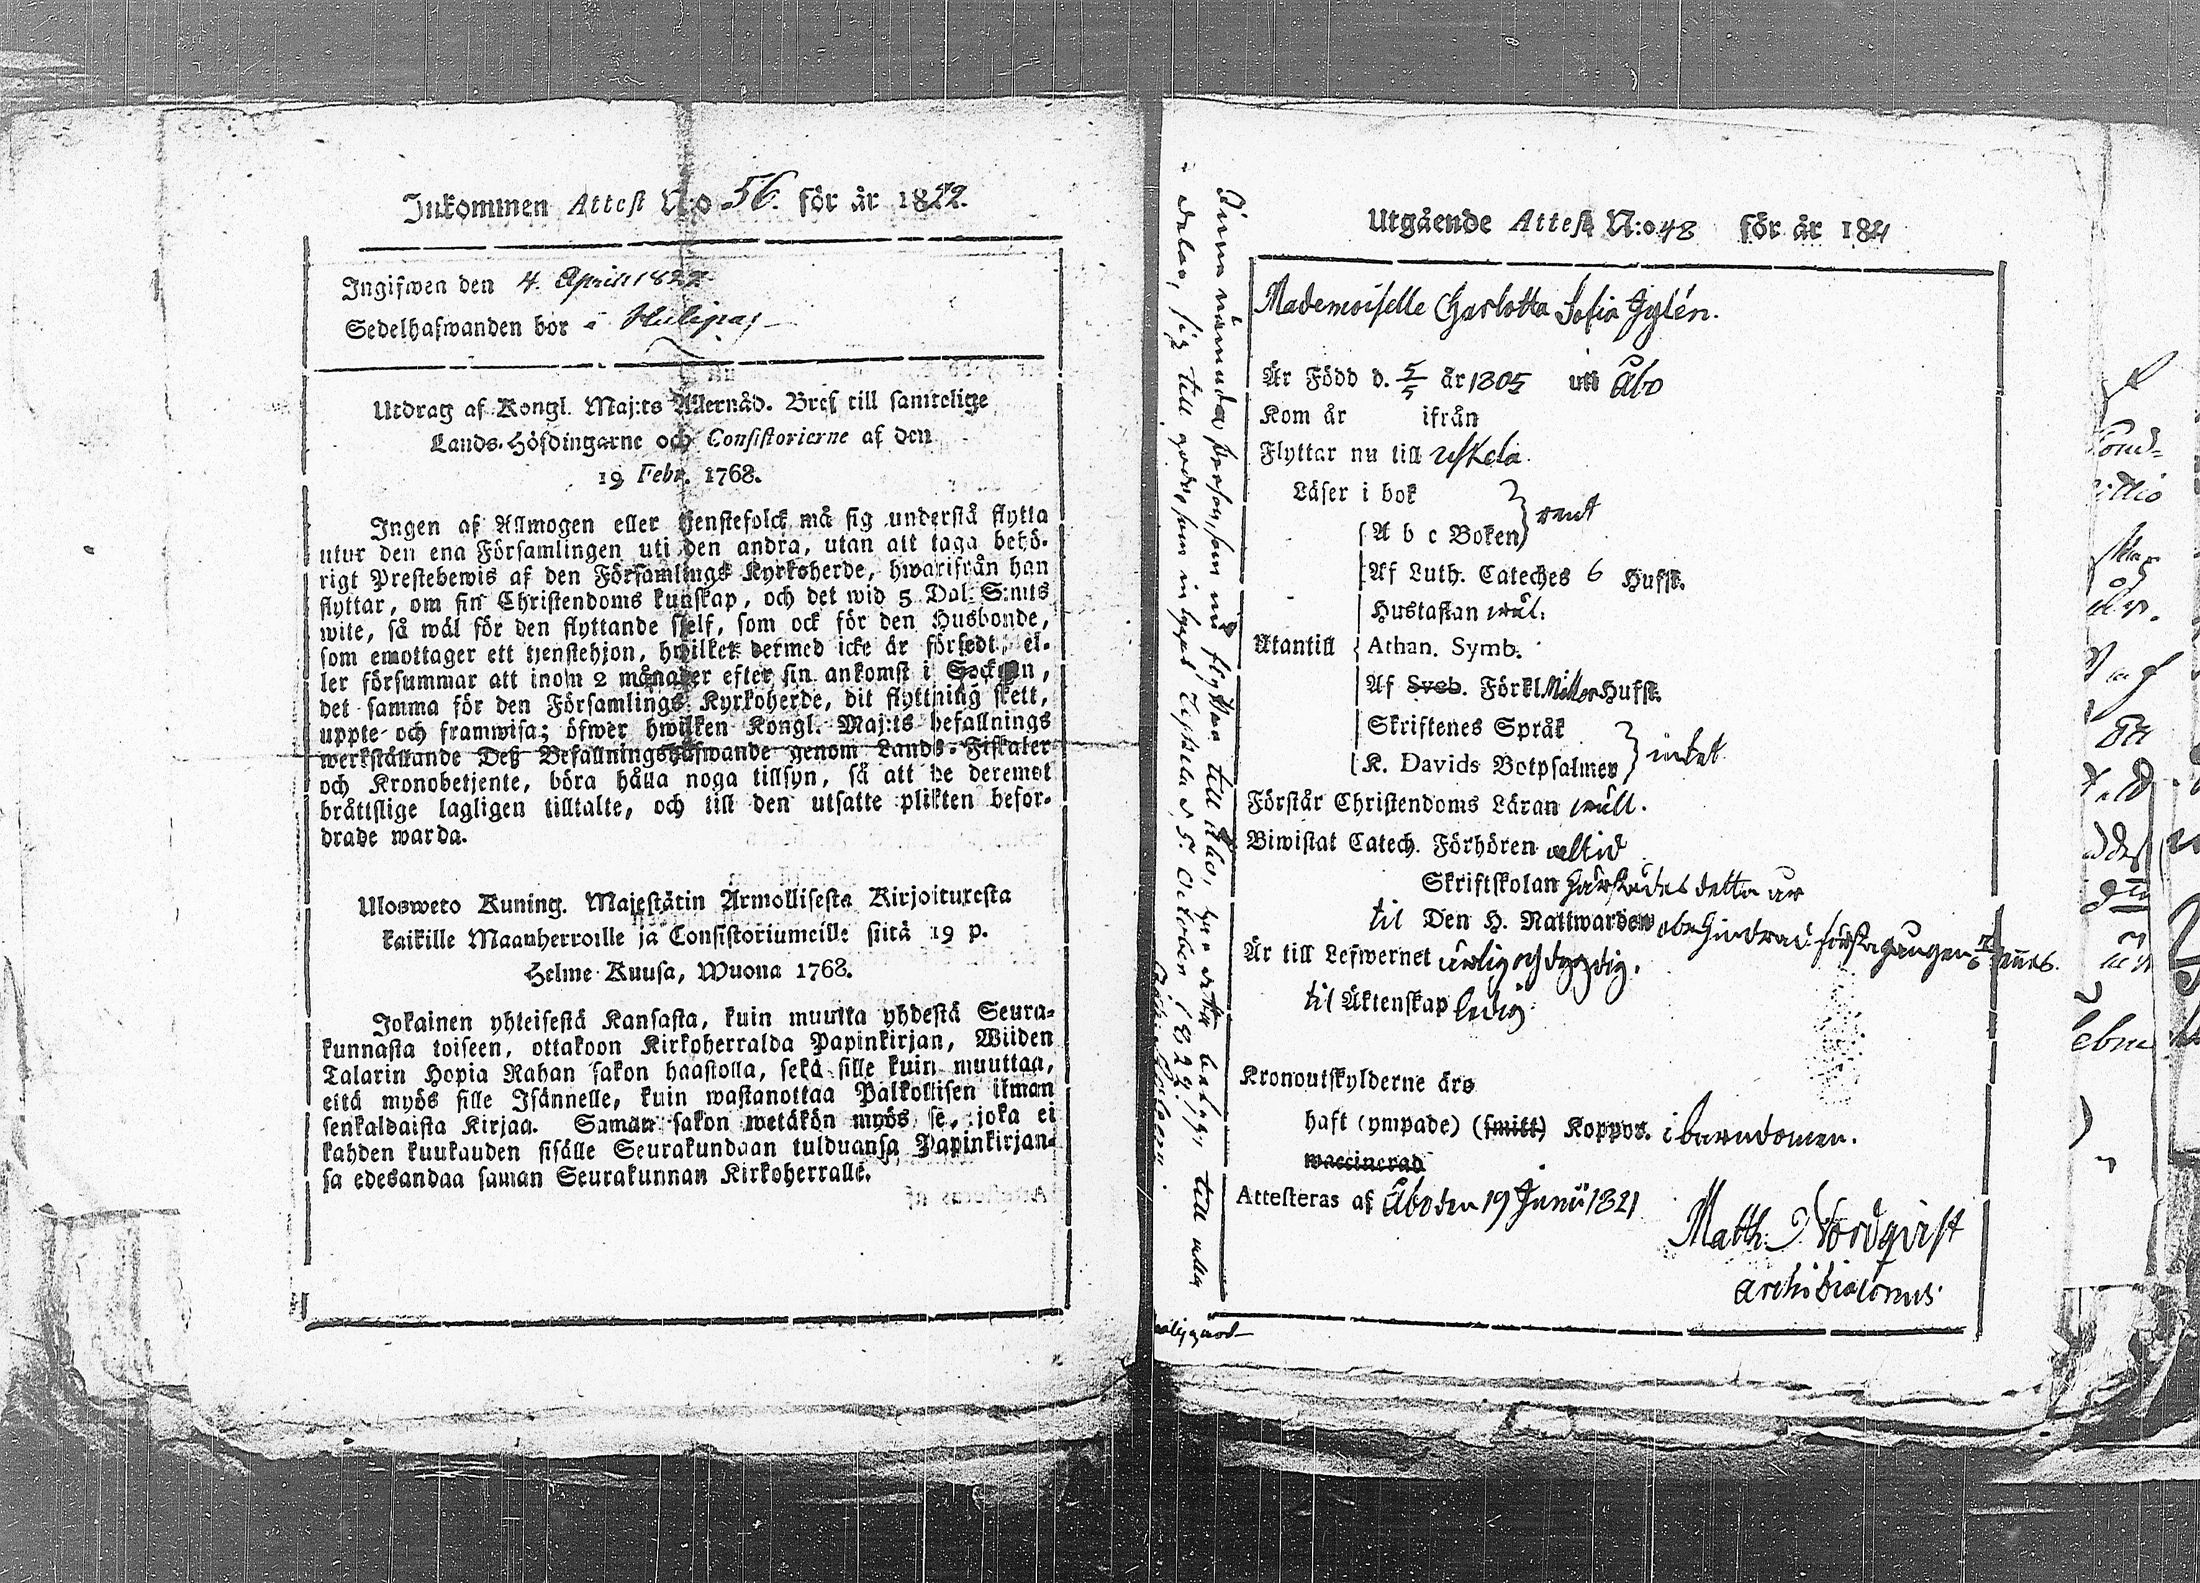 Inkommen Attest N:o 56. för år 1822.
Ingifwen den 4. April 1822
Sedelhafwanden bor i
Utdrag af Kongl. Maj:ts Allernåd. Bref till samtelige
Lands-Höfdingarne och Consistorierne af den
19 Febr. 1768.
Ingen af Allmogen eller tjenstefolck må sig understå flytta
utur den ena Församlingen uti den andra, utan att taga behö-
rigt Prestebewis af den Församlings Kyrkoherde, hwarifrån han
flyttar, om sin Christendoms kunskap, och det wid 5 Dal. S:mts
wite, så wäl för den flyttande sjelf, som ock för den Husbonde,
som emottager ett tjenstehjon, hwilket dermed icke är försedt, el-
ler försummar att inom 2 månader efter sin ankomst i Socknen,
det samma för den Församlings Kyrkoherde, dit flyttning skett,
uppte och framwisa; öfwer hwilken Kongl. Maj:ts befallnings
werkställande Deß Befallningshafwande genom Lands-Fiskaler
och Kronobetjente, böra hålla noga tillsyn, så att de deremot
bråttslige lagligen tilltalte, och till den utsatte plikten befor-
drade warda.
Ulosweto Kuning. Majestätin Armollisesta Kirjoituxesta
kaikille Maanherroille ja Consistoriumeille siitä 19 p.
Helme-Kuusa, Wuona 1768.
Jokainen yhteisestä Kansasta, kuin muutta yhdestä Seura-
kunnasta toiseen, ottakoon Kirkoherralda Papinkirjan, Wiiden
Talarin Hopia Rahan sakon haastolla, sekä sille kuin muuttaa,
eitä myös sille Isännelle, kuin wastanottaa Palkollisen ilman
senkaldaista Kirjaa. Saman sakon wetäkön myös se, joka ei
kahden kuukauden sisälle Seurakundaan tulduansa Papinkirjan-
sa edesandaa saman Seurakunnan Kirkoherralle.
Utgående Attest N:o 48 för år 1821
Mademoiselle Charlotta Sofia Gylén.
Är Född d. 5/5 år 1805 uti Åbo
Kom år ifrån
Flyttar nu till Uskela.
Läser i bok
A b c Boken } rent
Af Luth. Cateches 6 Hufst.
Hustaflan wäl.
Utantill Athan. Symb.
Af Sveb. Förkl. Möller Hufst.
Skriftenes Språk
K. Davids Botpsalmer } intet
Förstår Christendoms Läran wäll.
Biwistat Catech. Förhören alltid
Skriftskolan härstädes detta år
til Den H. Nattwarden obehindrad första gången
Är till Lefwernet ärlig och dygdig.
til Äktenskap ledig.
Kronoutskylderne äro
haft (ympade) (smitt) Koppor. i barndomen.
waccinerad
Attesteras af Åbo den 19 Junii 1821
Matth. Nordqvist
Archidiaconus
Denna nämnda person, som nu flyttar till Åbo, har detta betyg, till alla
delar, sig till godo, som inlyses Uskela d 5. October 1822.